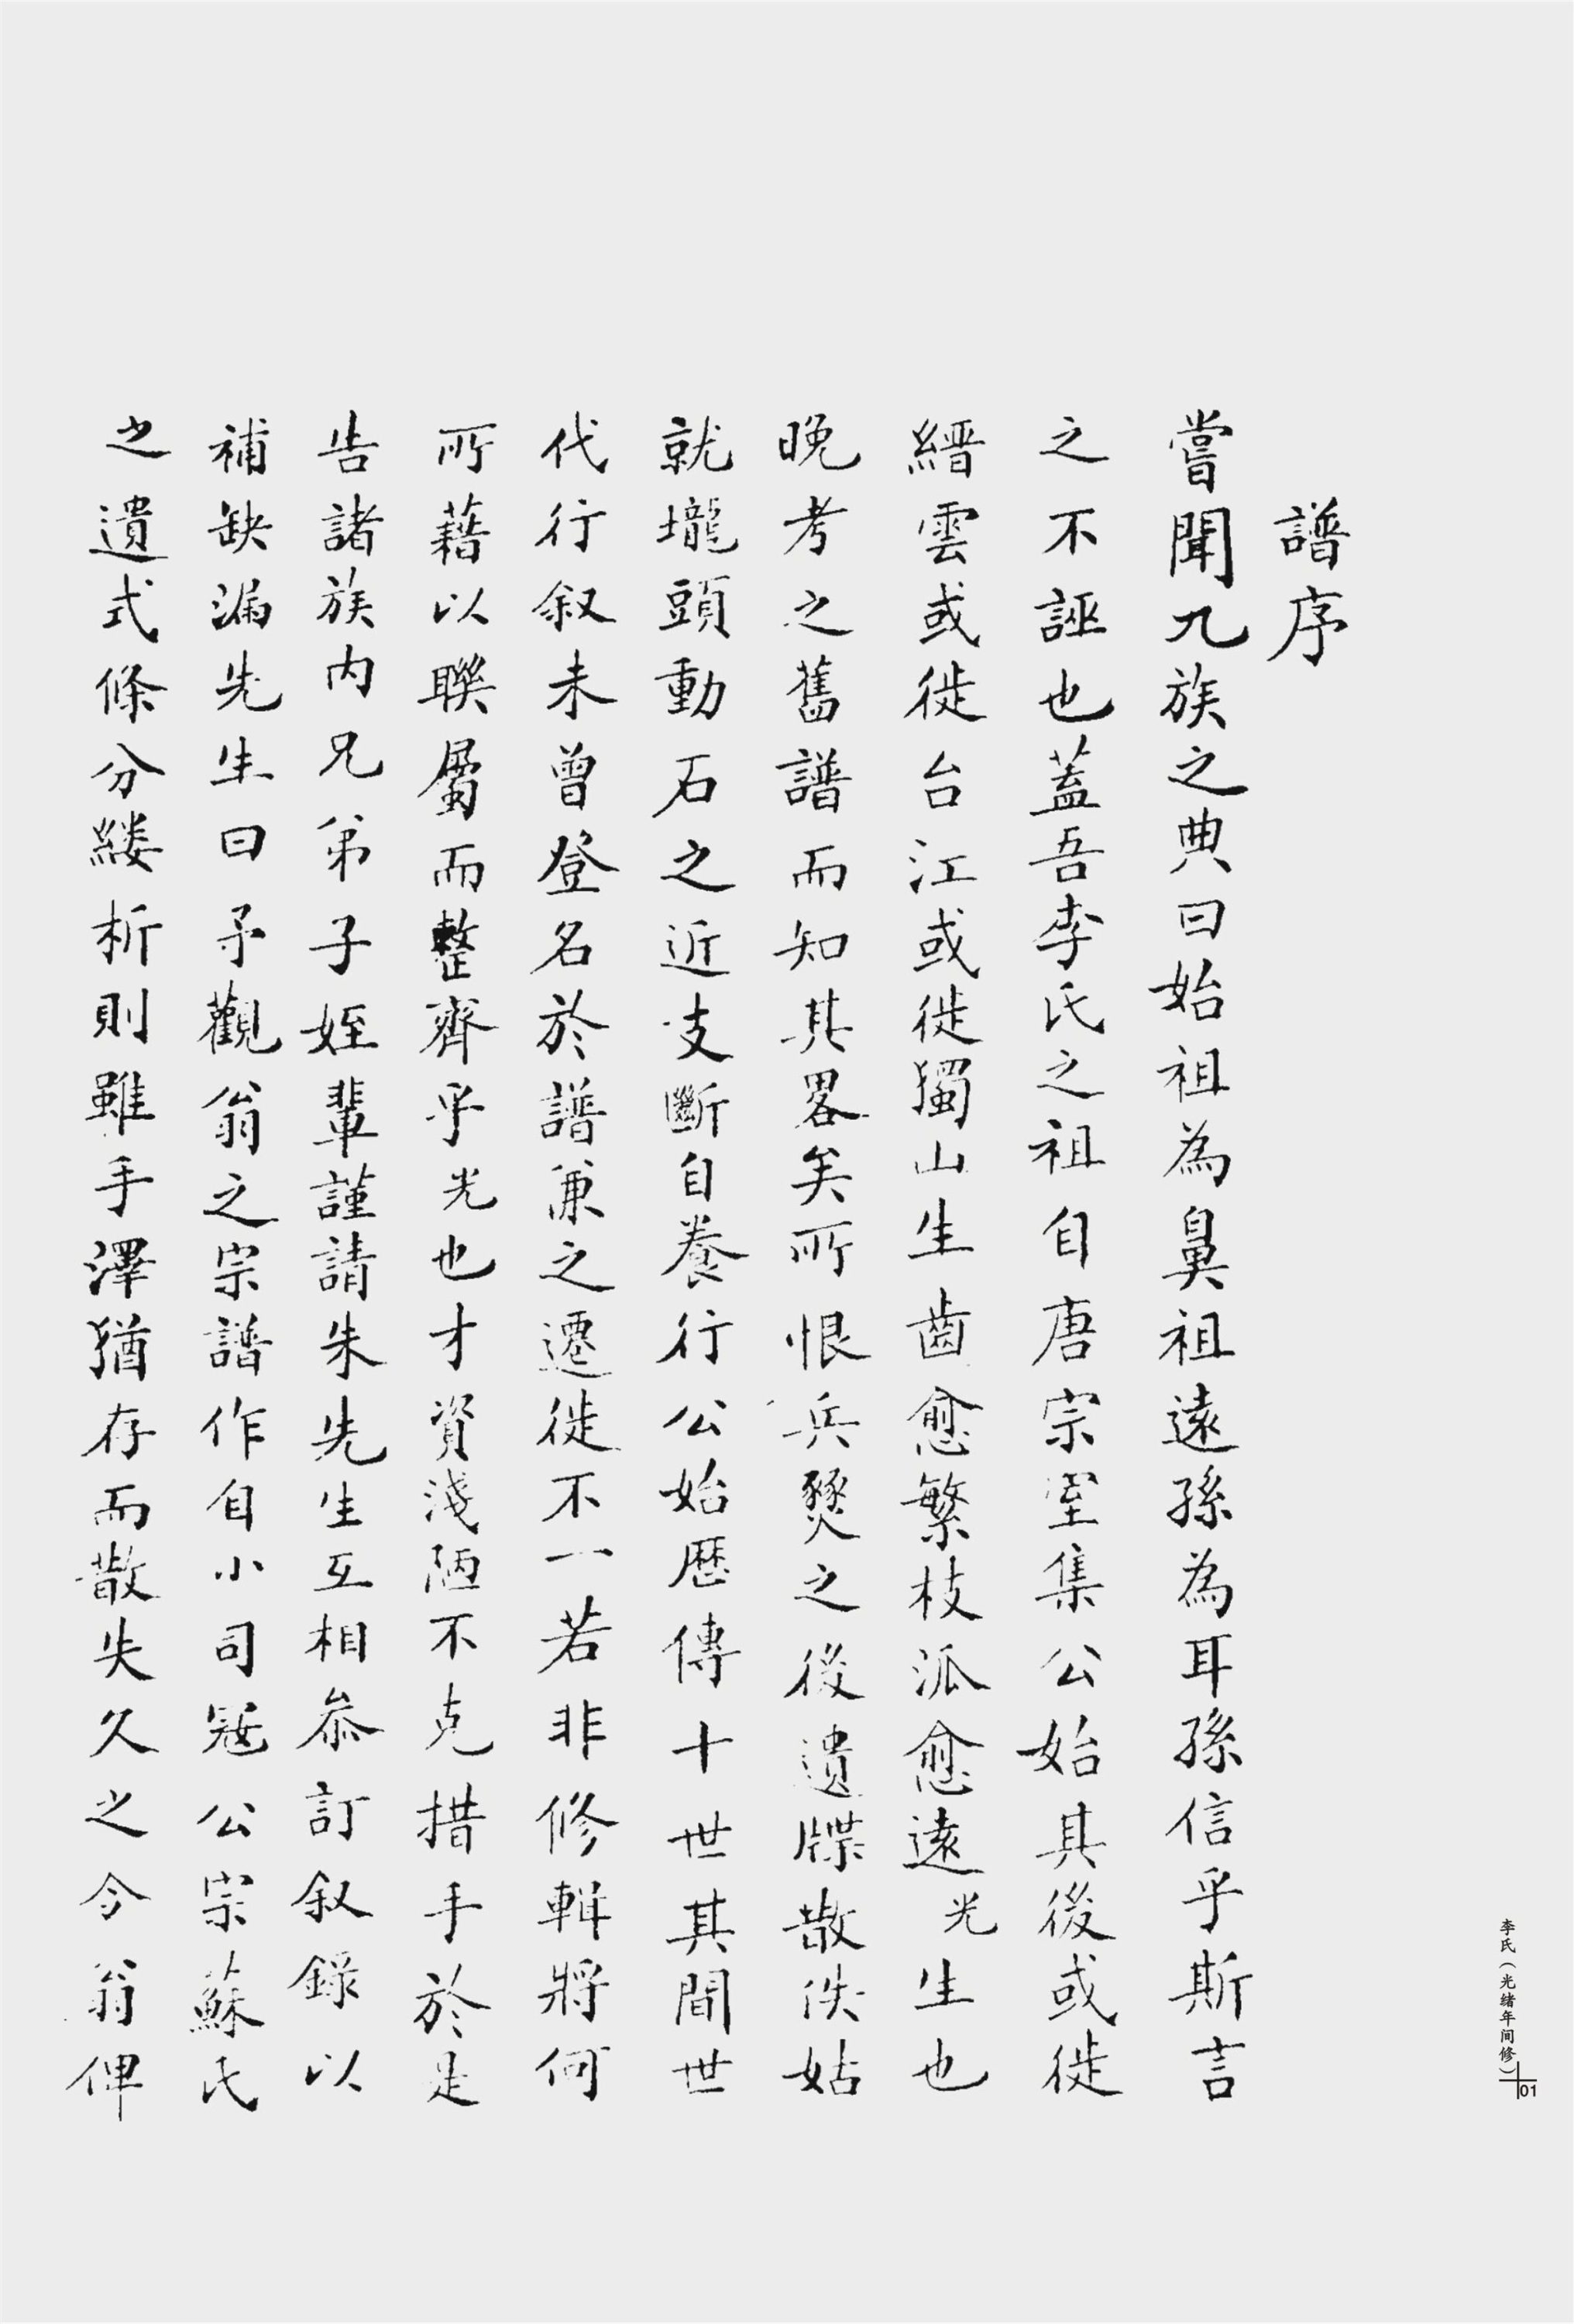 譜序
嘗聞九族之典曰始祖為鼻祖遠孫為耳孫信乎斯言
之不誣也蓋吾李氏之祖自唐宗室集公始其後或徙
縉雲或徙台江或徙獨山生齒愈繁枝派愈遠光生也
晚考之舊譜而知其畧矣所恨兵燹之後遺牒散佚姑
就壠頭動石之近支斷自養行公始歷傳十世其間世
代行叙未曾登名於譜兼之遷徙不一若非修輯將何
所藉以聯屬而整齊乎光也才資淺陋不克措手於是
告諸族內兄弟子姪輩謹請朱先生互相叅訂叙錄以
補缺漏先生曰予觀翁之宗譜作自小司寇公宗蘇氏
之遺式條分縷析則雖手澤猶存而散失久之今翁俾
李氏（光绪年间修）
01